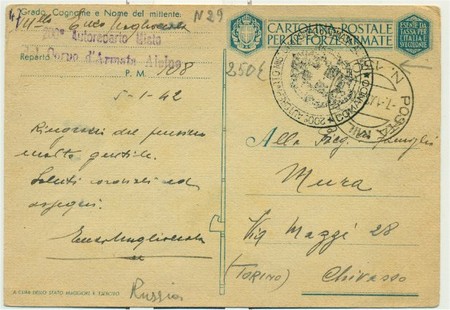 Grado, Cognome e Nome del mittente:
N 29
Autoreparto Misto
Reparto del Corpo d'Armata Alpino
P. M. 108
5-1-42
Ringrazio del pensiero
molto gentile.
Saluti cordiali ed
ossequi.
Russia
A CURA DELLO STATO MAGGIORE R. ESERCITO
CARTOLINA POSTALE
PER LE FORZE ARMATE
ESENTE DA
TASSA PER
L'ITALIA
250£
COMANDO
POSTA MIL
Alla
Mura
Via Mazzè 28
(TORINO) Chivasso